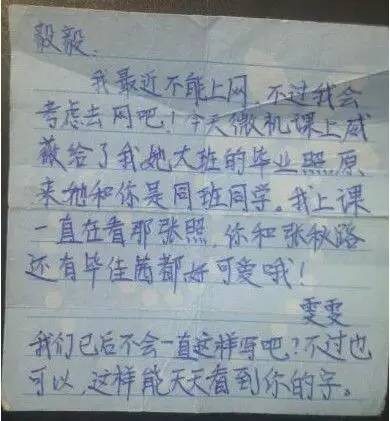 毅毅.
我最近不能上网，不过我会
考虑去网吧！今天微机课上威
薇给了我她大班的毕业照原
来她和你是同班同学。我上课
一直在看那张照，你和张秋路
还有毕佳茜都好可爱哦！
雯雯
我们已后不会一直这样写吧？不过也
可以，这样能天天看到你的字。